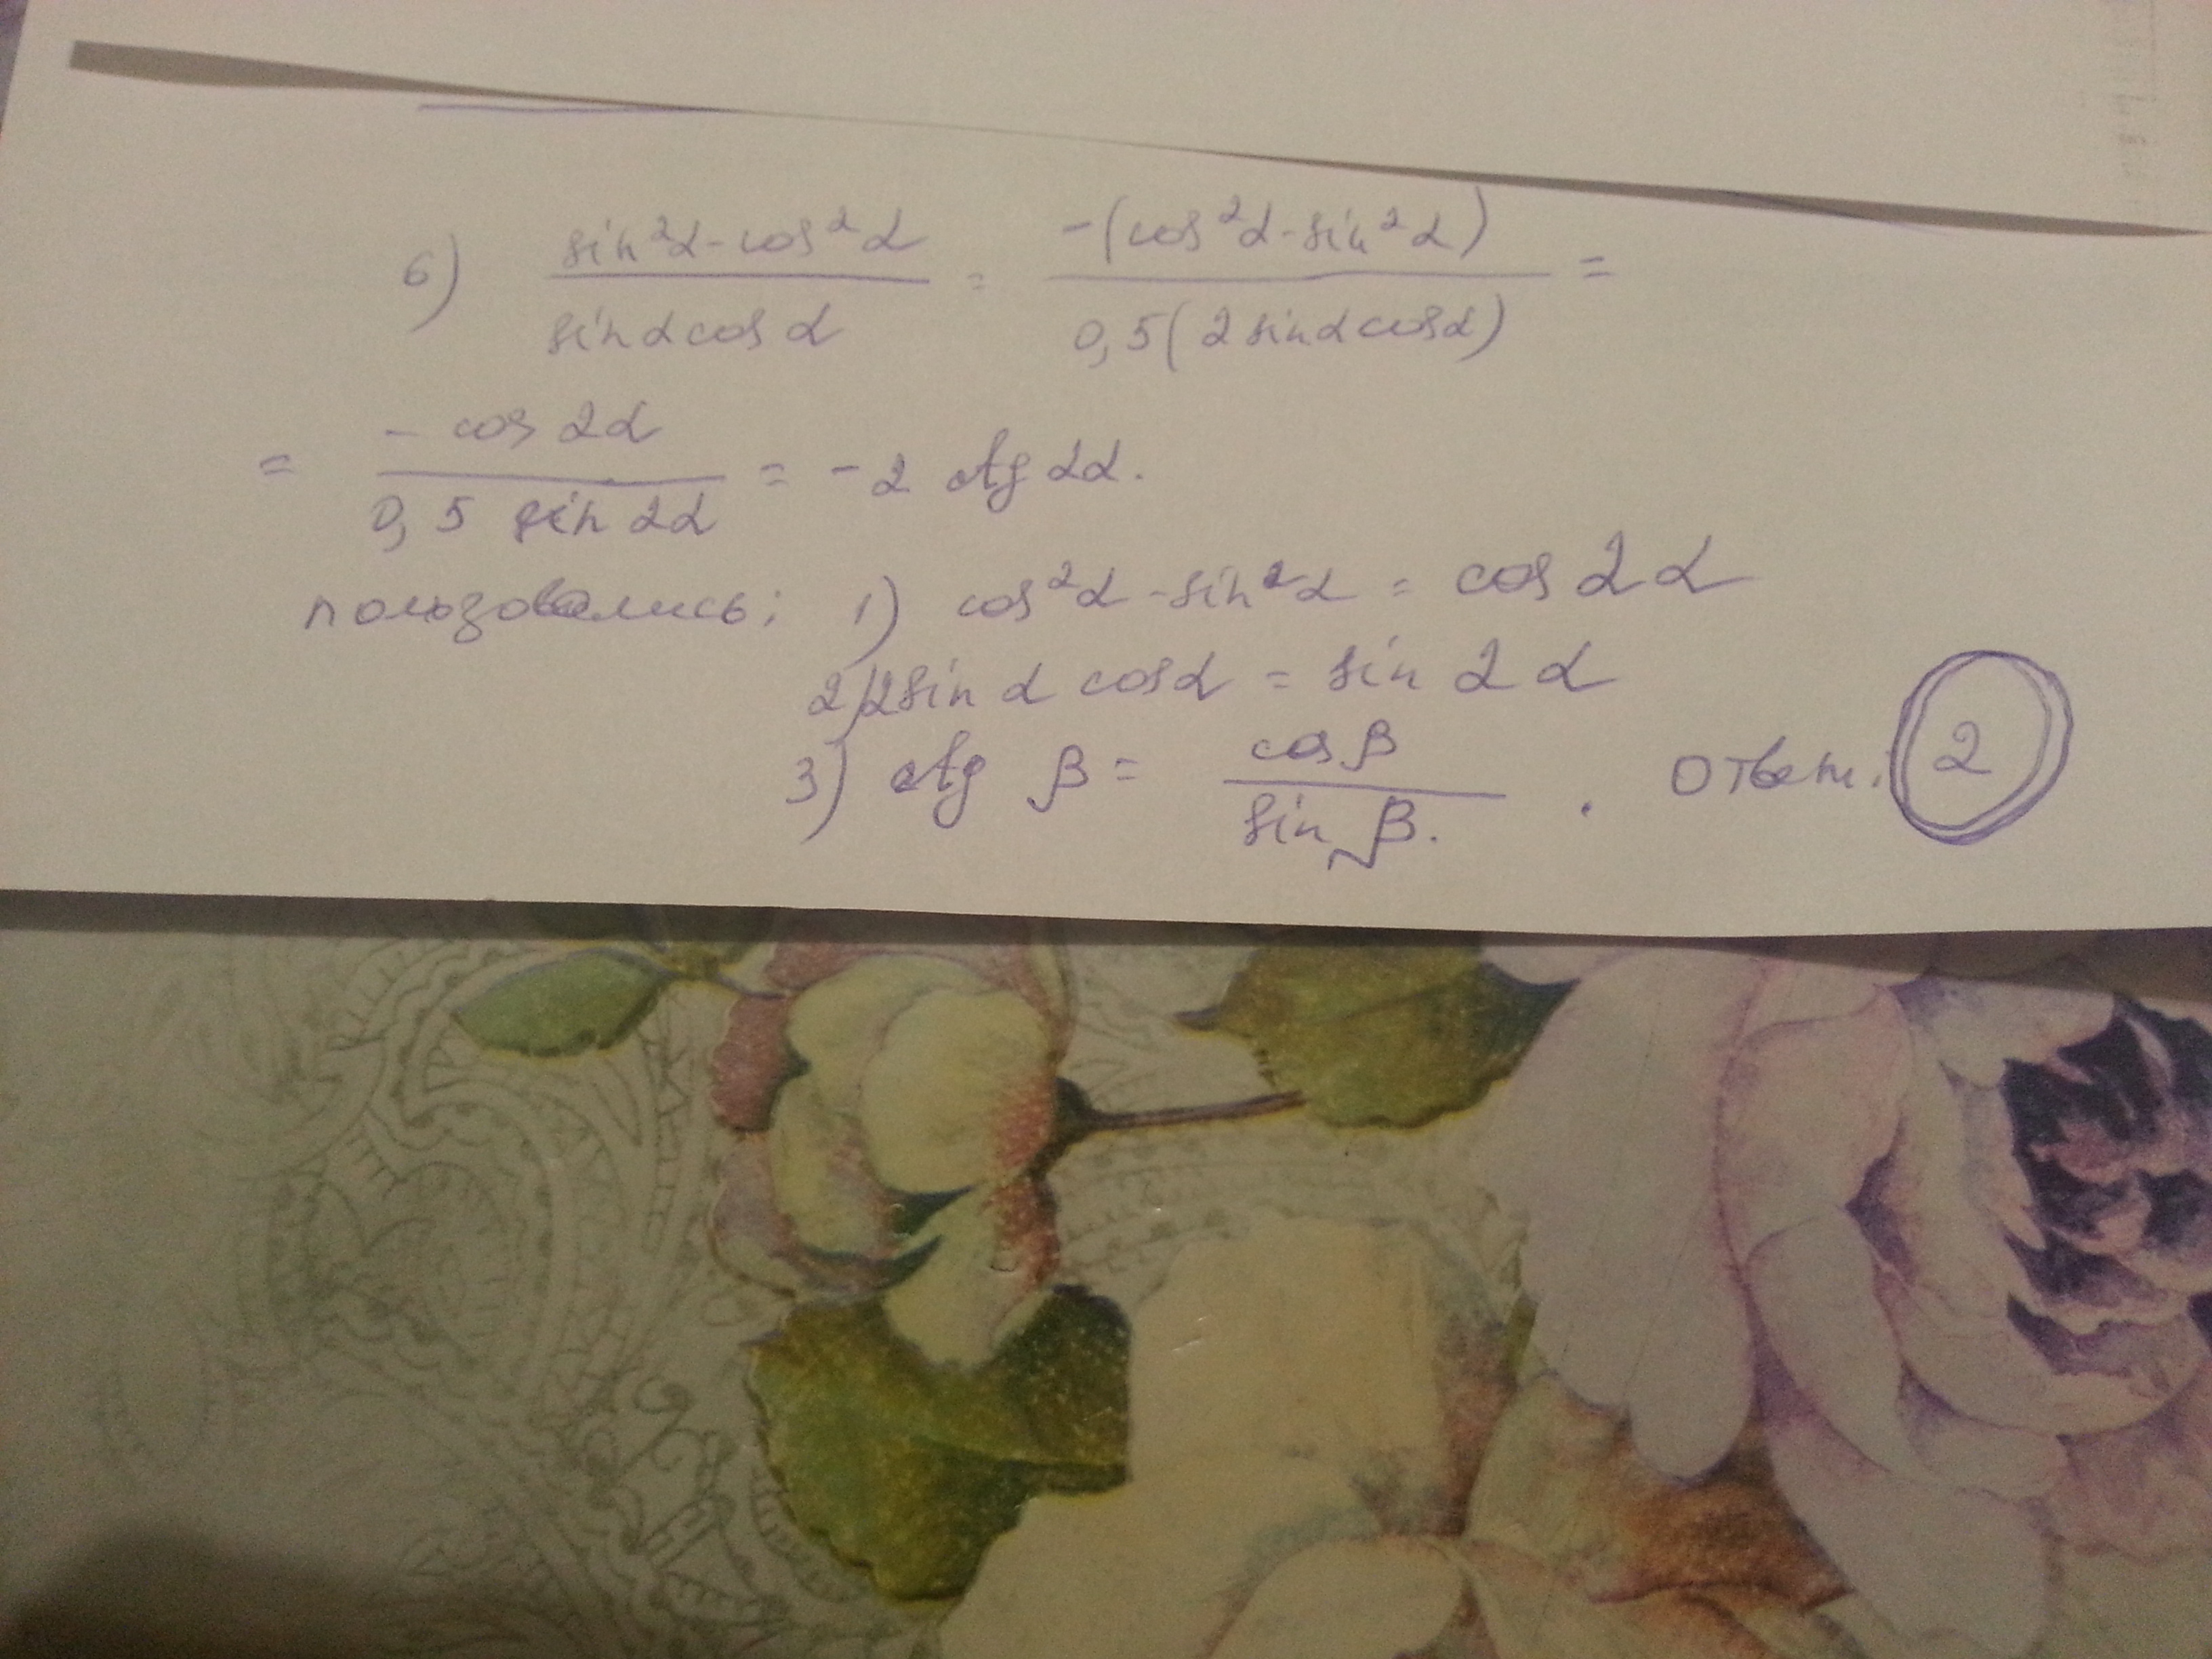 6) sin²α-cos²α / sinαcosα = -(cos²α-sin²α) / 0,5(2sinαcosα) =
= -cos2α / 0,5 sin2α = -2 ctg2α.
пользовались: 1) cos²α-sin²α = cos2α
2) 2sinα cosα = sin2α
3) ctg β = cosβ / sinβ. Ответ: 2